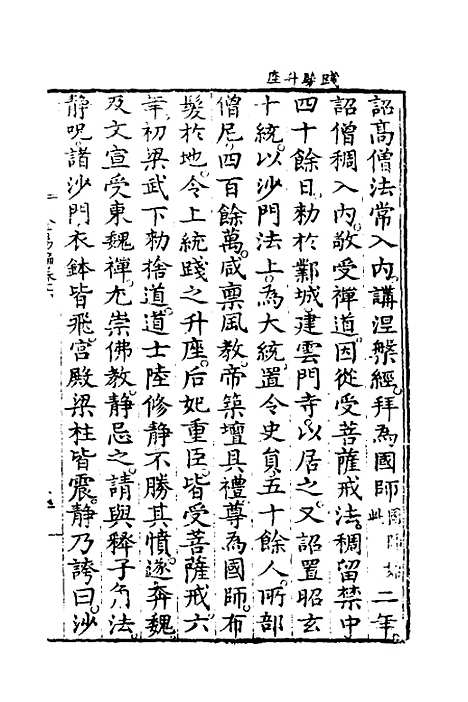 踐髮升座
詔高僧法常入內講涅槃經拜為國師國師始此二年
詔僧稠入內敬受禪道因從受菩薩戒法稠留禁中
四十餘日勅於鄴城建雲門寺以居之又詔置昭玄
十統以沙門法上為大統置令史員五十餘人所部
僧尼四百餘萬咸稟風教帝築壇具禮尊為國師布
髮於地令上統踐之升座后妃重臣皆受菩薩戒六
年初梁武下勅捨道道士陸修靜不勝其憤遂奔魏
及文宣受東魏禪尤崇佛教靜忌之請與釋子角法
靜呪諸沙門衣鉢皆飛宮殿梁柱皆震靜乃誇曰沙